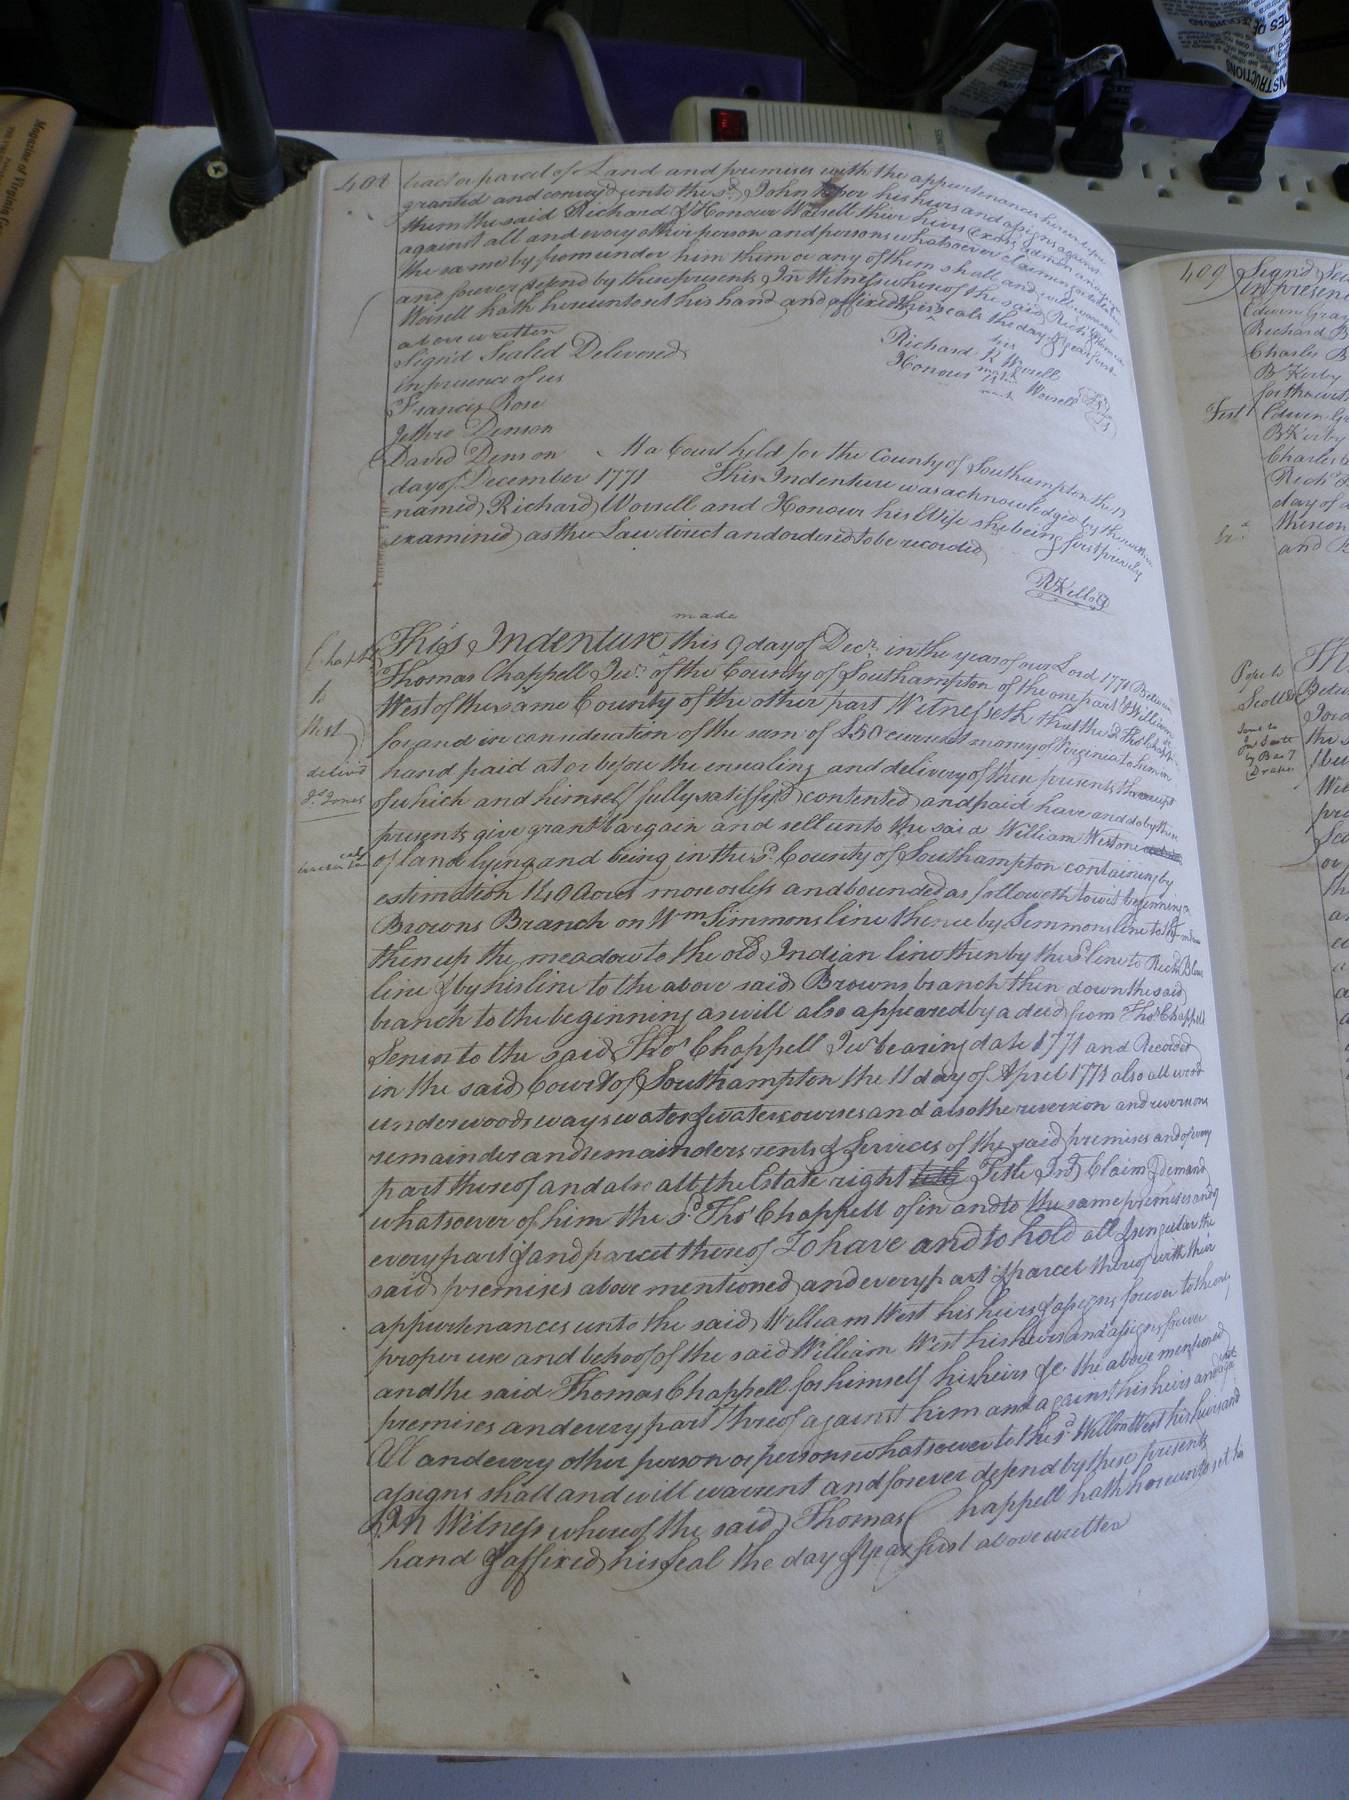 408
tract or parcel of Land and premises with the appurtenances
granted and convey'd unto the sd. John his heirs and assigns against
them the said Richard & Honour Worrell their heirs Exors admrs
against all and every other person and persons whatsoever claiming
the same by from under him them or any of them shall and will warrant
and forever defend by these presents In Witness whereof the said Richd
Worrell hath hereunto set his hand and affixed their seals the day & year first
above written
Signd Sealed Delivered
in presence of us
Francis Rose
Jethro Denson
David Denson
Richard R Worrell
his
mark
Honour Worrell
mark
At a Court held for the County of Southampton the 12
day of December 1771 This Indenture was acknowledged by the within
named Richard Worrell and Honour his Wife she being first privily
examined as the Law direct and ordered to be recorded
RKello
Chapl
to
West
delivd
Js. Jones
made
This Indenture this 9 day of Decr. in the year of our Lord 1771 Between
Thomas Chappell Junr. of the County of Southampton of the one part & William
West of the same County of the other part Witnesseth that the sd Thos Chappell
for and in consideration of the sum of £50 current money of Virginia to him in
hand paid at or before the ensealing and delivery of these presents the receipt
of which and himself fully satisfy'd contented and paid have and do by these
presents give grant bargain and sell unto the said William West one
of land lying and being in the sd. County of Southampton containing by
estimation 140 Acres more or less and bounded as followeth to wit beginning
Browns Branch on Wm Simmons line thence by Simmons line to the
then up the meadow to the old Indian line then by the sd line to Richd
line & by his line to the above said Browns branch then down the said
branch to the beginning as will also appeared by a deed from Thos Chappell
Senr to the said Thos Chappell Junr bearing date 1771 and Recorded
in the said Court of Southampton the 11 day of April 1771 also all wood
underwoods ways water & watercourses and also the reversion and reversions
remainder and remainders rents & Services of the said premises and of every
part thereof and also all the Estate right title Title Int Claim & demand
whatsoever of him the sd. Thos Chappell of in and to the same premises and
every part & and parcel thereof To have and to hold all & singular the
said premises above mentioned and every part & parcel thereof with their
appurtenances unto the said William West his heirs & assigns forever to the only
proper use and behoof of the said William West his heirs and assigns forever
and the said Thomas Chappell for himself his heirs &c the above mentioned
premises and every part thereof against him and against his heirs and
All and every other person or persons whatsoever to the sd. William West his heirs and
assigns shall and will warrent and forever defend by these presents
In Witness whereof the said Thomas Chappell hath hereunto set his
hand & affixed his seal the day & year first above written
409
Signd Sea
in presen
Edwin Gray
Richard B
Charles B
B Kerby
Test
Edwin G
B Kerby
Charles
Richd
day of
thereon
and B
Pope to
Scott
Sent to
Js Scott
by Ben T
Drake
Th
Betw
the s
Wit
pre